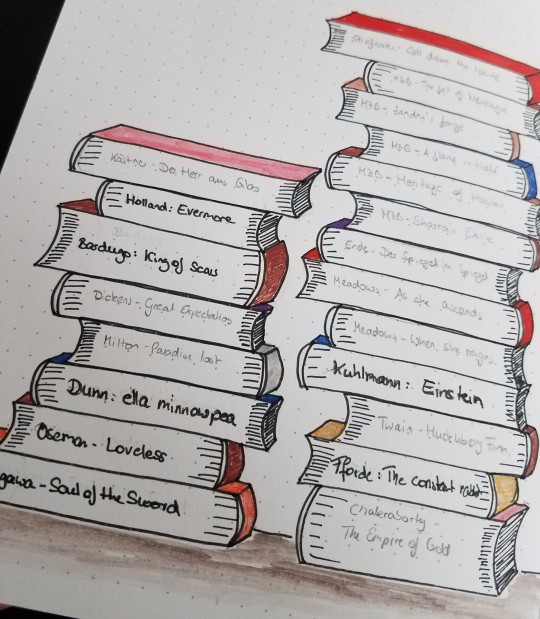 Kästner - Der Herr aus Glas
Holland: Evermore
Bardugo: King of Scars
Dickens - Great Expectations
Milton - Paradise lost
Dunn: ella minnow pea
Oseman - Loveless
gawa - Soul of the Sword
Stiefvater - Call down the hawk
H&G - The fall of
H&G - forge
H&G - A flame in
H&G - Heritage of
H&G - Empire
Ende - Der Spiegel im Spiegel
Meadows - As she ascends
Meadows - When she reigns
Kuhlmann: Einstein
Twain - Huckleberry Finn
Fforde: The constant rabbit
Chakraborty -
The Empire of Gold